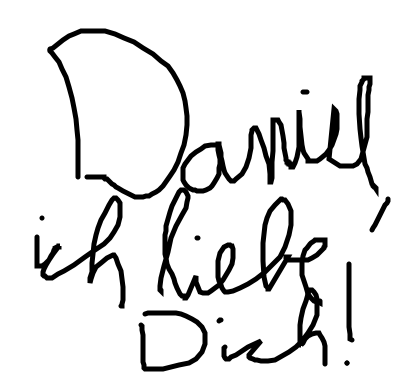 Daniel,
ich liebe
Dich!